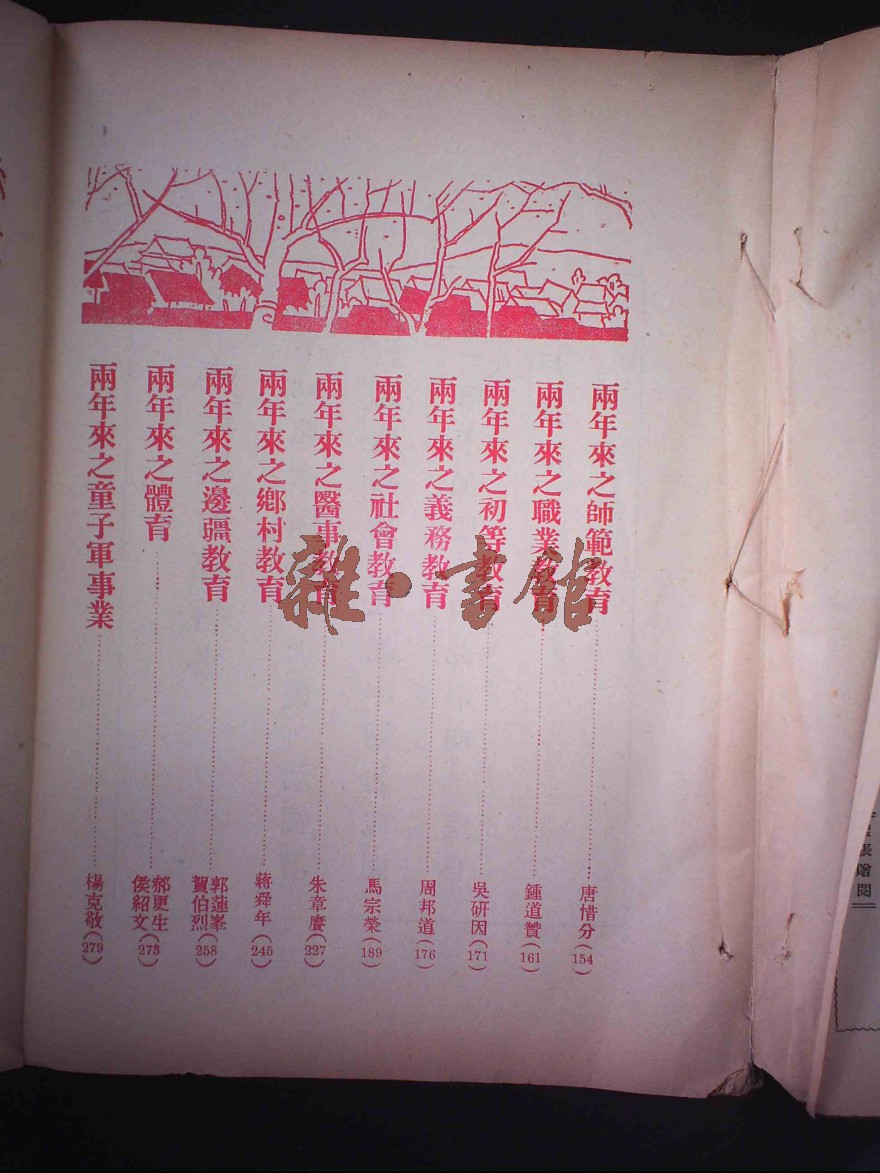 兩年來之師範教育……唐惜分(154)
兩年來之職業教育……鍾道贊(161)
兩年來之初等教育……吳研因(171)
兩年來之義務教育……周邦道(176)
兩年來之社會教育……馬宗榮(189)
兩年來之醫事教育……朱章賡(227)
兩年來之鄉村教育……蔣舜年(245)
兩年來之邊疆教育……郭蓮峯 賀伯烈(258)
兩年來之體育……郝更生 侯紹文(273)
兩年來之童子軍事業……楊克敬(279)
雜·書館
張贈閱